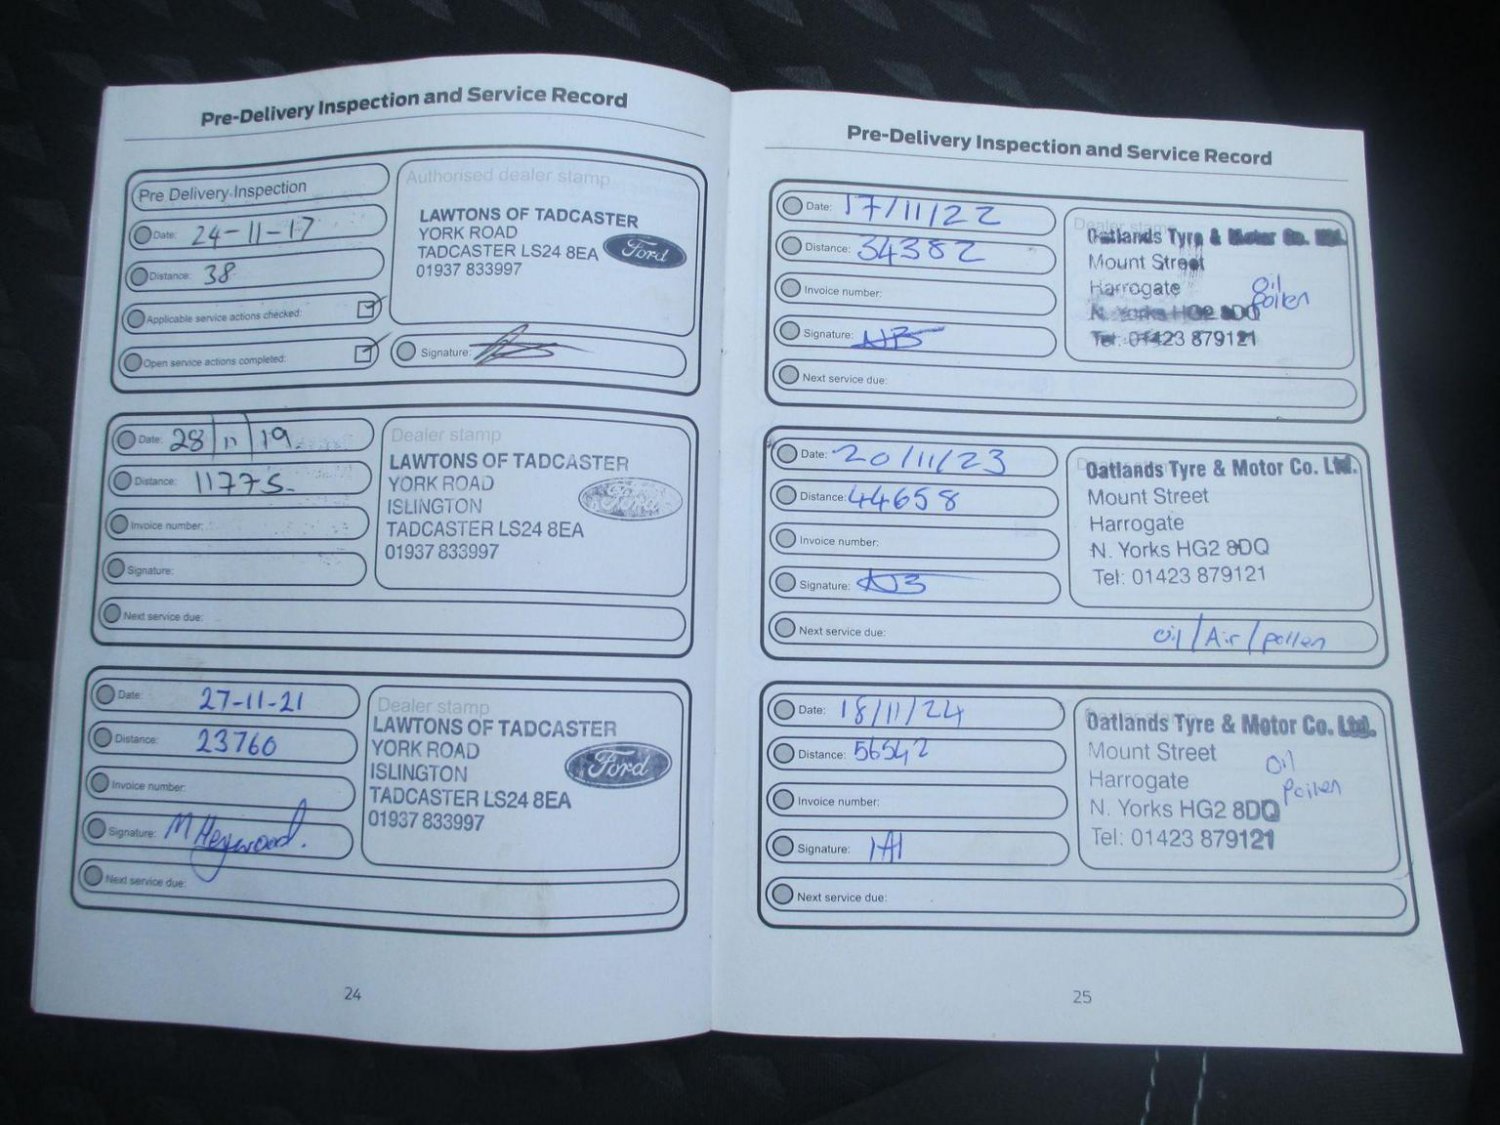 Pre-Delivery Inspection and Service Record
Pre Delivery Inspection
Date: 24-11-17
Distance: 38
Applicable service actions checked:
Open service actions completed:
Authorised dealer stamp
LAWTONS OF TADCASTER
YORK ROAD
TADCASTER LS24 8EA
01937 833997
Ford
Signature:
Date: 28/11/19
Distance: 11775.
Invoice number:
Signature:
Next service due:
Dealer stamp
LAWTONS OF TADCASTER
YORK ROAD
ISLINGTON
TADCASTER LS24 8EA
01937 833997
Ford
Date: 27-11-21
Distance: 23760
Invoice number:
Signature: M Heywood.
Next service due:
Dealer stamp
LAWTONS OF TADCASTER
YORK ROAD
ISLINGTON
TADCASTER LS24 8EA
01937 833997
Ford
24
Pre-Delivery Inspection and Service Record
Date: 17/11/22
Distance: 34382
Invoice number:
Signature:
Next service due:
Dealer stamp
Oatlands Tyre & Motor Co. Ltd.
Mount Street
Harrogate
N. Yorks HG2 8DQ
Tel: 01423 879121
Oil
pollen
Date: 20/11/23
Distance: 44658
Invoice number:
Signature:
Next service due: oil/Air/pollen
Oatlands Tyre & Motor Co. Ltd.
Mount Street
Harrogate
N. Yorks HG2 8DQ
Tel: 01423 879121
Date: 18/11/24
Distance: 56542
Invoice number:
Signature:
Next service due:
Oatlands Tyre & Motor Co. Ltd.
Mount Street
Harrogate
N. Yorks HG2 8DQ
Tel: 01423 879121
Oil
Pollen
25